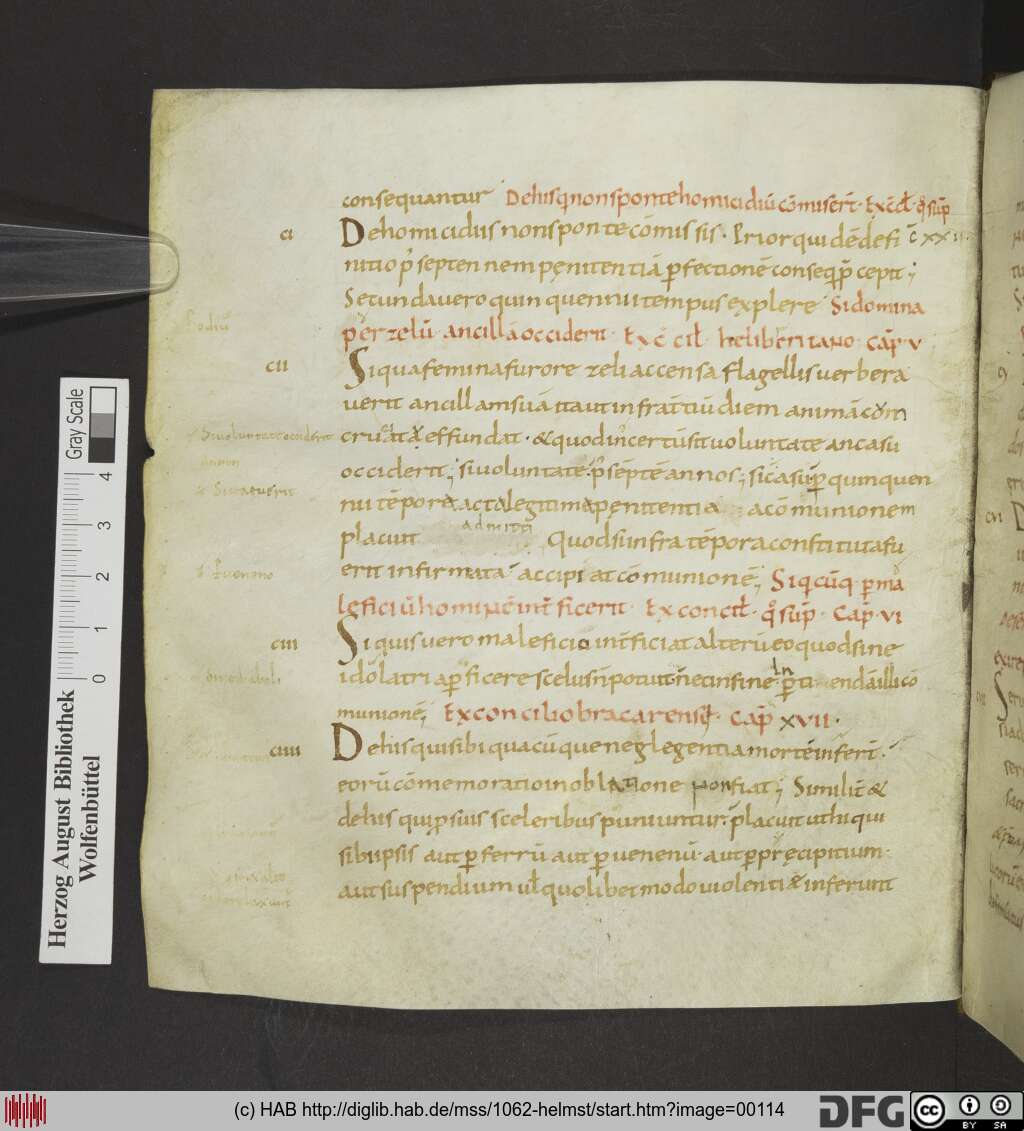 consequantur Dehisq nonspontehomicidiū cōmiserī. Exc̄cł. qď sup̄
ci Dehomicidiis nonsponte cōmissis. Prior quidē defi c̄ xxii.
nitio p̄ septennem penitentiā pfectionē conseq p̄cepit;
Secunda vero quinquennii tempus explere Sidomina
per zelū ancillā occiderit. Exc̄ cił heliberitano cap̄ v
cii Siqua femina furore zeli accensa flagellis verbera
verit ancillam suā ita ut infra tiū diem animā cum
cruciatu effundat. & quod incertū sit voluntate an casu
occiderit; si voluntate. p̄ septē annos; si casu p quinquen
nii tēpora acta legitima penitentia a cōmunionem
placuit admitti Quodsi infra tēpora constituta fu
erit infirmata accipiat cōmunionē; Siq̄cūq̄ p ma
leficiū hominē int̄ficerit. Ex concił. qď sup̄. Cap̄. vi
ciii Si quis vero maleficio int̄ficiat alterū eo quod sine
idolatria pficere scelus n̄ potuit. nec in fine inptiendā illi cō
munionē; Ex concilio bracarensi. cap̄ xvii.
ciiii De his qui sibi quacūque neglegentia mortē inferī.
eorū cōmemoratio in oblatione non fiat; Similit̄ &
de his qui p suis sceleribus puniuntur. placuit ut hi qui
sibi ipsis aut p ferrū aut p venenū. aut p precipitium.
aut suspendium uł quolibet modo violentiā inferunt
Si voluntate occiderit
Si casu erit
Herzog August Bibliothek
Wolfenbüttel
Gray Scale
0 1 2 3 4
cvi
(c) HAB http://diglib.hab.de/mss/1062-helmst/start.htm?image=00114
DFG
cc BY SA